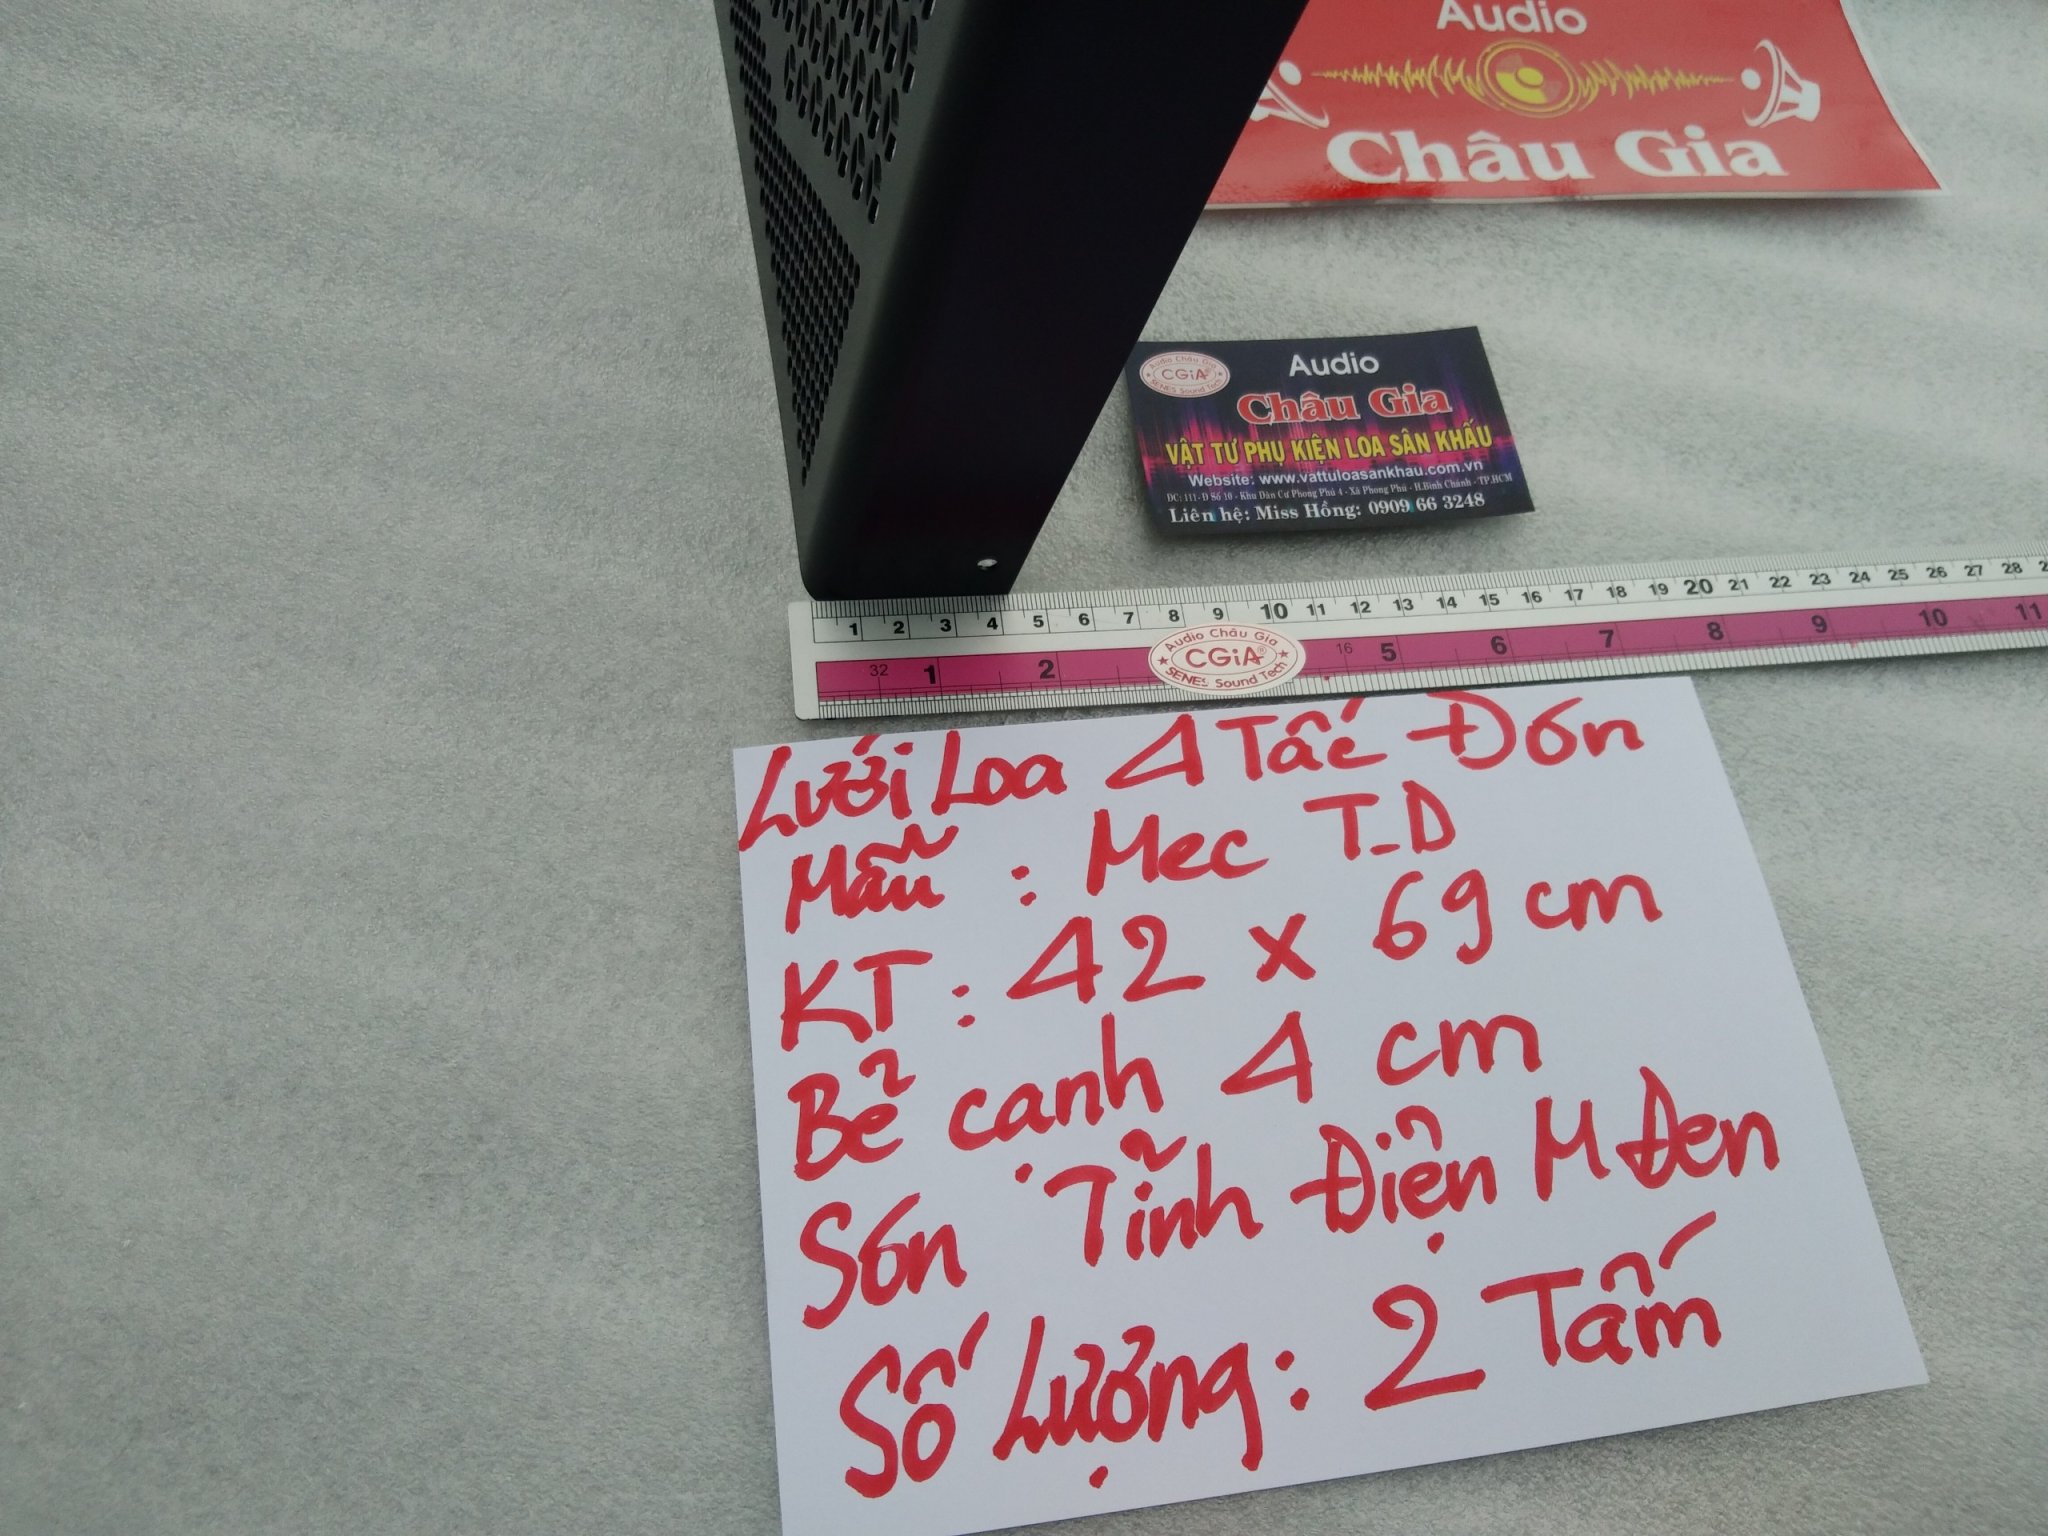 Audio
Châu Gia
Audio Châu Gia
CGiA®
SENES Sound Tech
Audio
Châu Gia
VẬT TƯ PHỤ KIỆN LOA SÂN KHẤU
Website: www.vattuloasankhau.com.vn
ĐC: 111- Đ Số 10 - Khu Dân Cư Phong Phú 4 - Xã Phong Phú - H.Bình Chánh - TP.HCM
Liên hệ: Miss Hồng: 0909 66 3248
1 2 3 4 5 6 7 8 9 10 11 12 13 14 15 16 17 18 19 20 21 22 23 24 25 26 27 28
32 1 2 16 5 6 7 8 9 10 11
Audio Châu Gia
CGiA®
SENES Sound Tech
Lưới Loa 4 Tấc Đơn
Mẫu : Mec T-D
KT : 42 x 69 cm
Bẻ cạnh 4 cm
Sơn Tĩnh Điện M Đen
Số Lượng : 2 Tấm